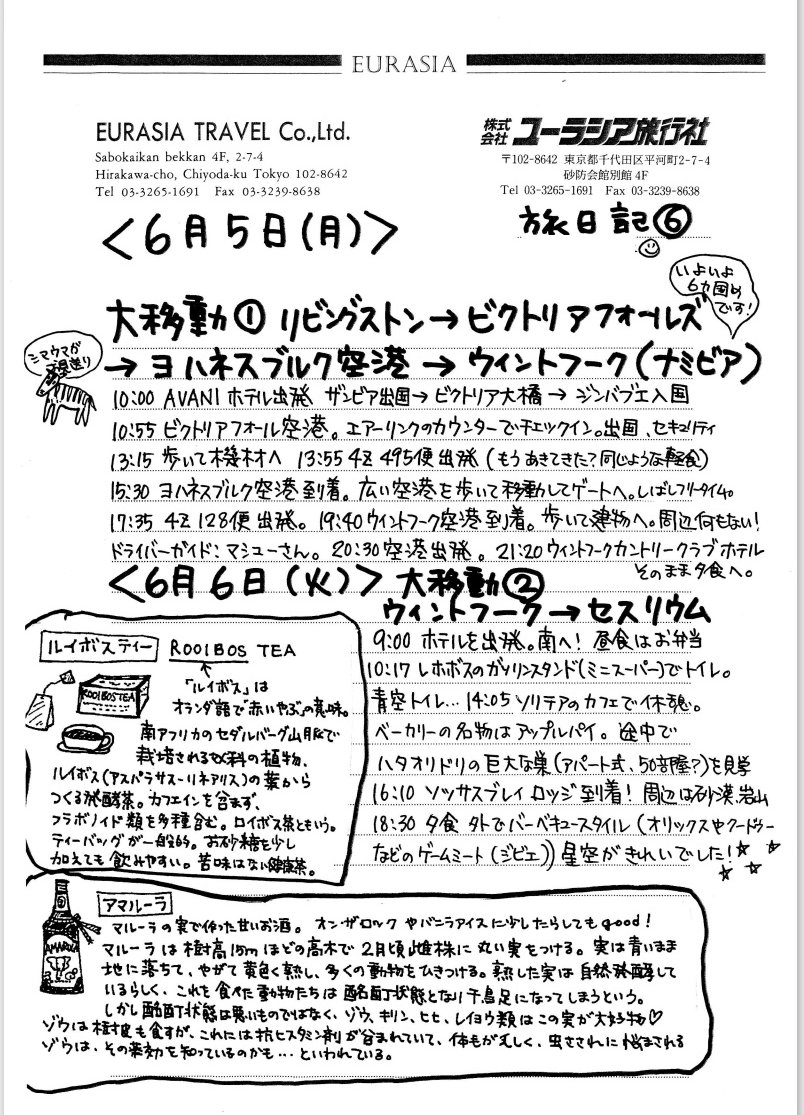 EURASIA
EURASIA TRAVEL Co.,Ltd.
Sabokaikan bekkan 4F, 2-7-4
Hirakawa-cho, Chiyoda-ku Tokyo 102-8642
Tel 03-3265-1691 Fax 03-3239-8638
株式会社 ユーラシア旅行社
〒102-8642 東京都千代田区平河町2-7-4
砂防会館別館4F
Tel 03-3265-1691 Fax 03-3239-8638
<6月5日(月)>
旅日記⑥
いよいよ
6カ国め
です!
大移動① リビングストン→ビクトリアフォールズ
→ヨハネスブルク空港→ウィントフーク(ナミビア)
シマウマが
お見送り
10:00 AVANIホテル出発 ザンビア出国→ビクトリア大橋→ジンバブエ入国
10:55 ビクトリアフォール空港。エアーリンクのカウンターでチェックイン。出国、セキュリティ
13:15 歩いて機材へ 13:55 4Z 495便出発(もうあきてきた?同じような軽食)
15:30 ヨハネスブルク空港到着。広い空港を歩いて移動してゲートへ。しばしフリータイム。
17:35 4Z 128便出発。19:40 ウィントフーク空港到着。歩いて建物へ。周辺何もない!
ドライバーガイド:マシューさん。20:30 空港出発。21:20 ウィントフークカントリークラブホテル
そのまま夕食へ。
<6月6日(火)> 大移動②
ウィントフーク→セスリウム
9:00 ホテルを出発。南へ! 昼食はお弁当
10:17 レホボスのガソリンスタンド(ミニスーパー)でトイレ。
青空トイレ… 14:05 ソリテアのカフェで休憩。
ベーカリーの名物はアップルパイ。途中で
ハタオリドリの巨大な巣(アパート式、50部屋?)を見学
16:10 ソッサスブレイロッジ到着! 周辺は砂漠、岩山
18:30 夕食 外でバーベキュースタイル(オリックスやクードゥー
などのゲームミート(ジビエ)) 星空がきれいでした!
ルイボスティー ROOIBOS TEA
ROOIBOSTEA
「ルイボス」は
オランダ語で"赤いやぶ"の意味。
南アフリカのセダルバーグ山脈で
栽培される豆科の植物、
ルイボス(アスパラサス-リネアリス)の葉から
つくる発酵茶。カフェインを含まず、
フラボノイド類を多種含む。ロイボス茶ともいう。
ティーバッグが一般的。お砂糖を少し
加えても飲みやすい。苦味はない健康茶。
アマルーラ
AMARULA
マルーラの実で作った甘いお酒。オンザロックやバニラアイスに少したらしてもgood!
マルーラは樹高15mほどの高木で2月頃雌株に丸い実をつける。実は青いまま
地に落ちて、やがて黄色く熟し、多くの動物をひきつける。熟した実は自然発酵して
いるらしく、これを食べた動物たちは酩酊状態となり千鳥足になってしまうという。
しかし酩酊状態は悪いものではなく、ゾウ、キリン、ヒヒ、レイヨウ類はこの実が大好物♡
ゾウは樹皮も食すが、これには抗ヒスタミン剤が含まれていて、体毛が乏しく、虫さされに悩まされる
ゾウは、その薬効を知っているのかも…といわれている。